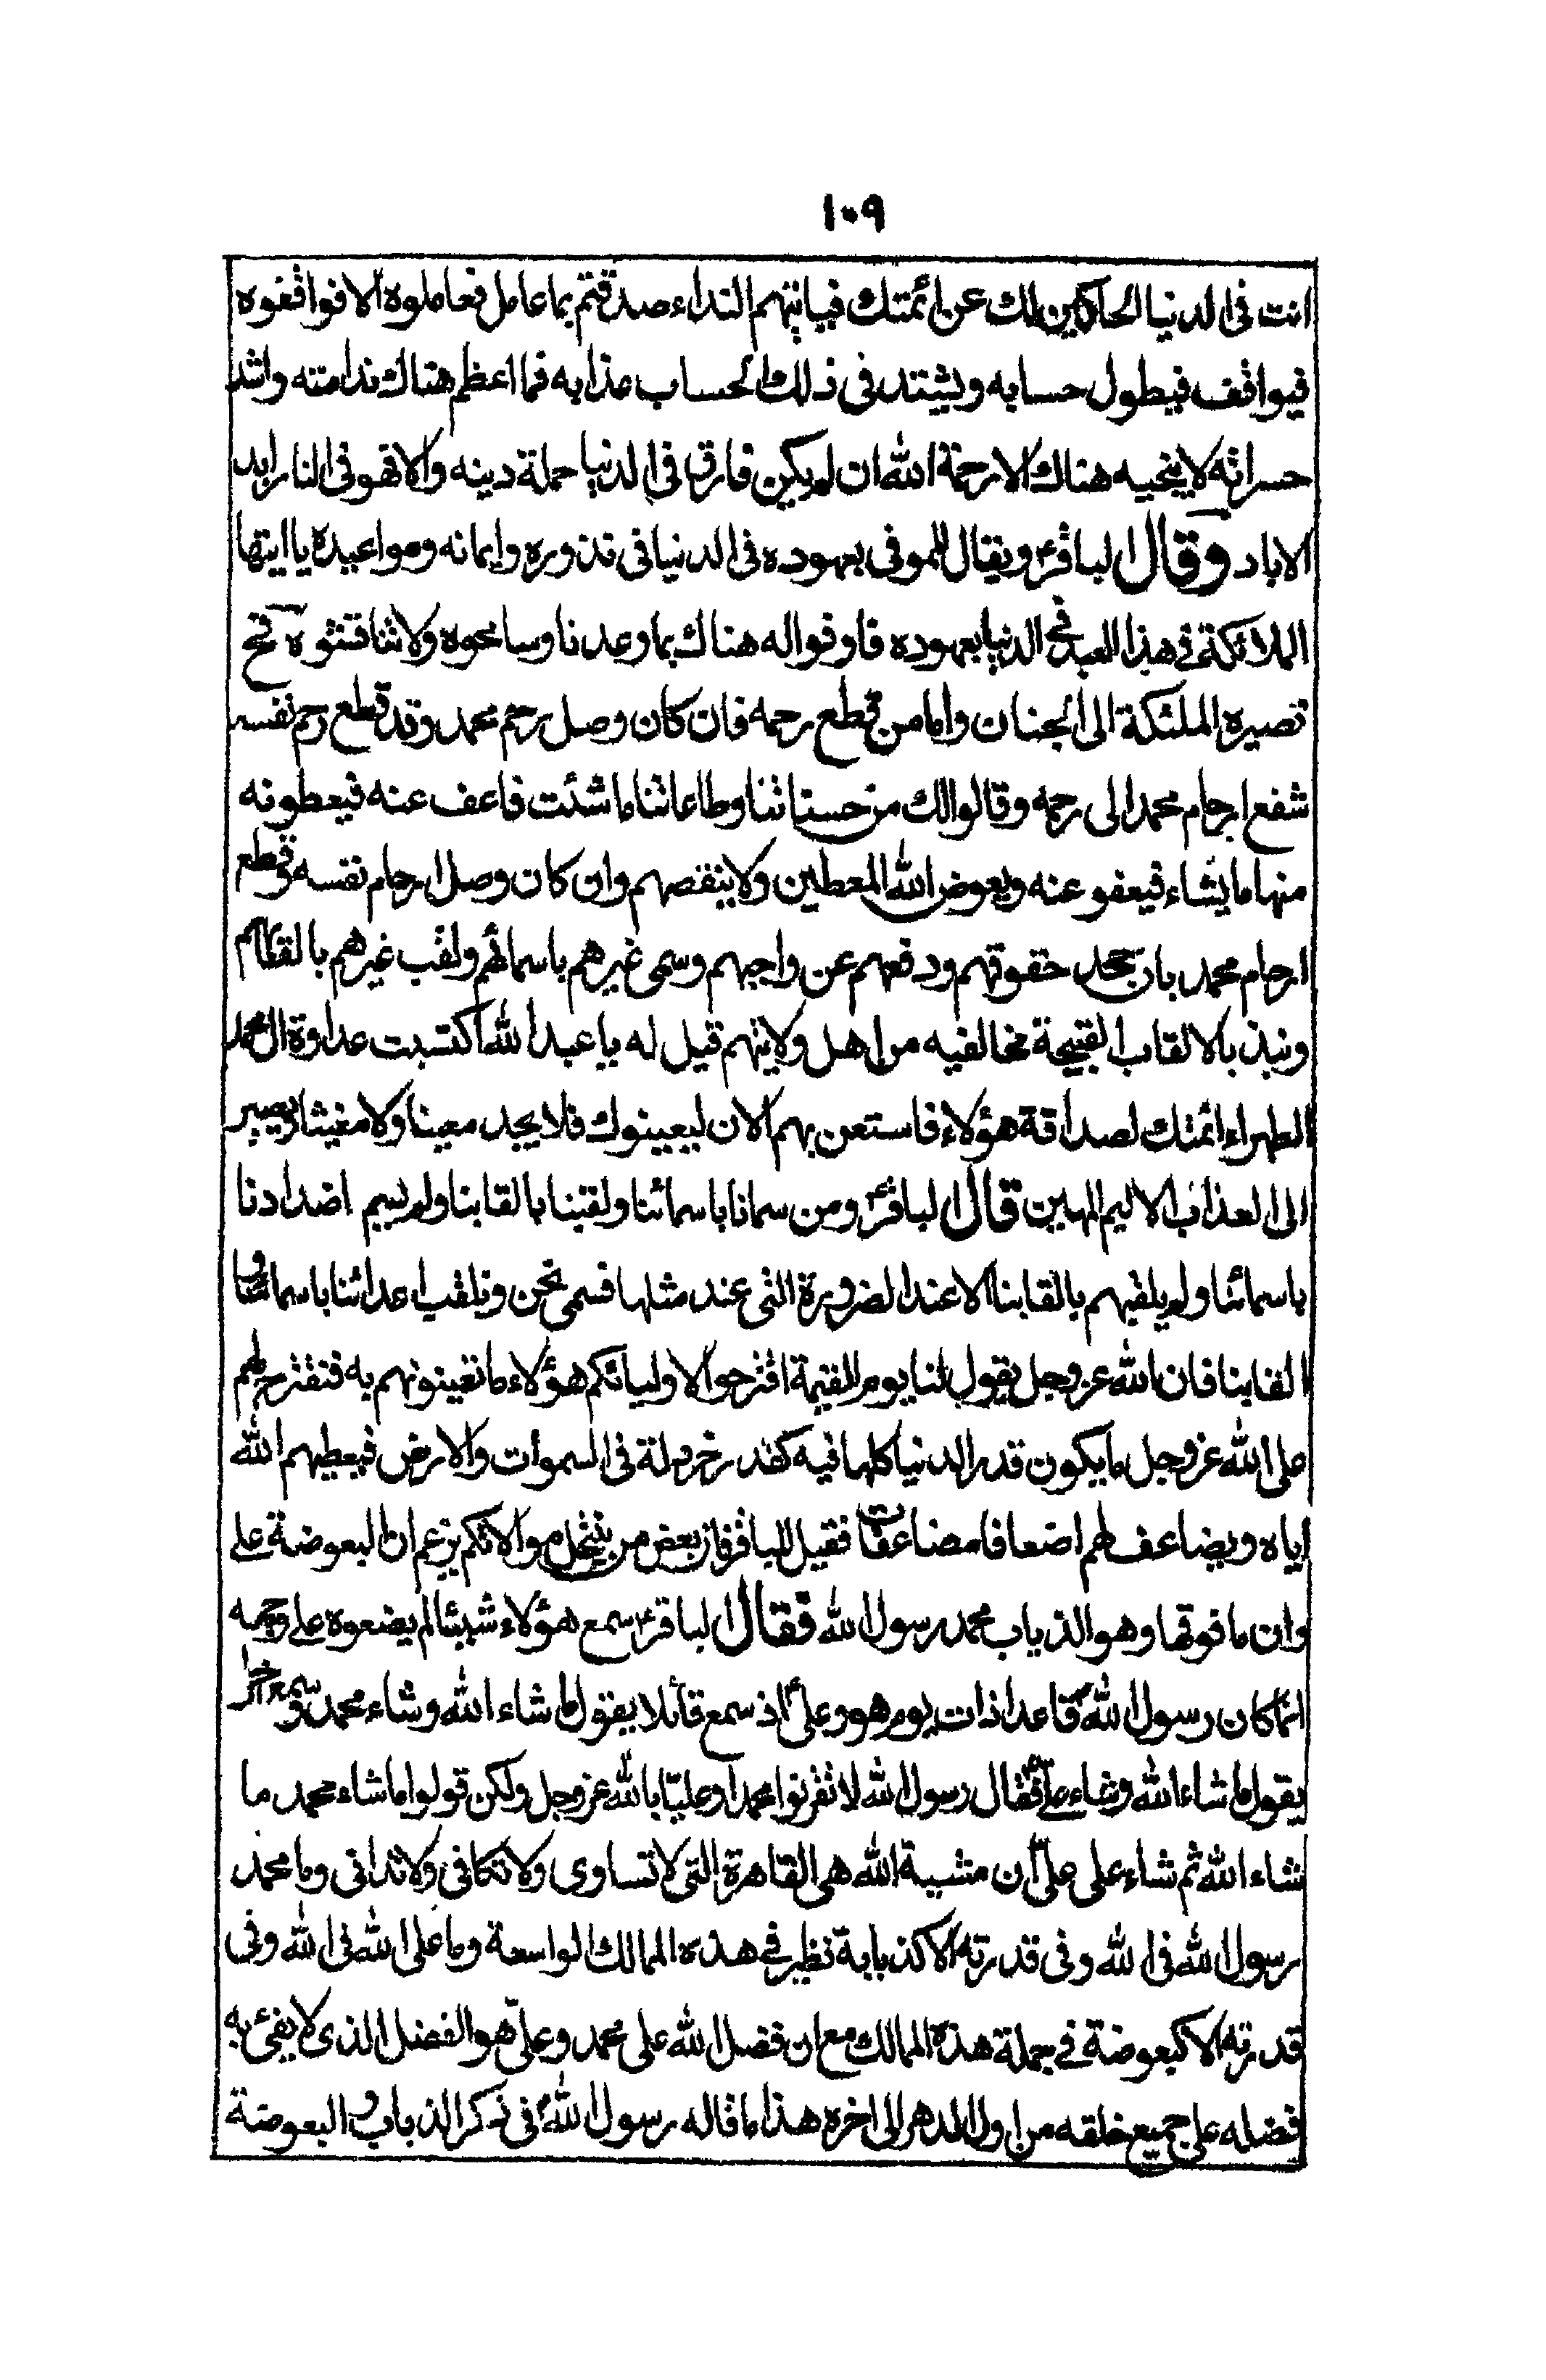 ١٠٩
انت فى الدنيا الحاكين لك عن ائمتك فياتيهم النداء صدقتم بما عامل فعاملوه الا فواقفوه
فيواقف فيطول حسابه ويشتد فى ذلك الحساب عذابه فما اعظم هناك ندامته واشد
حسراته لا ينجيه هناك الا رحمة الله ان لم يكن فارق فى الدنيا جملة دينه والا فهو فى النار ابد
الاباد وقال الباقرؑ ويقال للموفى بعهوده فى الدنيا فى نذوره وايمانه ومواعيده يا ايتها
الملائكة فى هذا العبد فى الدنيا بعهوده فاوفوا له هناك بما وعدنا وسامحوه ولا تناقشوه فح
تصيره الملئكة الى الجنان واما من قطع رحمه فان كان وصل رحم محمد وقد قطع رحم نفسه
شفع ارحام محمد الى رحمه وقالوا لك من حسناتنا وطاعاتنا ما شئت فاعف عنه فيعطونه
منها ما يشاء فيعفو عنه ويعوض الله المعطين ولا ينقصهم وان كان وصل ارحام نفسه وقطع
ارحام محمد بان جحد حقوقهم ودفعهم عن واجبهم وسمى غيرهم باسمائهم ولقب غيرهم بالقابهم
ونبذ بالالقاب القبيحة مخالفيه من اهل ولايتهم قيل له يا عبد الله اكتسبت عداوة ال محمد
الطهراء ائمتك لصداقة هؤلاء فاستعن بهم الان ليعينوك فلا يجد معينا ولا مغيثا ويصير
الى العذاب الاليم المهين قال الباقرؑ ومن سمانا باسمائنا ولقبنا بالقابنا ولم يسم اضدادنا
باسمائنا ولم يلقبهم بالقابنا الا عند الضرورة التى عند مثلها نسمى نحن ونلقب اعدائنا باسمائنا و
القابنا فان الله عز وجل يقول لنا يوم القيمة اقترحوا لاوليائكم هؤلاء ما تعينونهم به فنقترح لهم
على الله عز وجل ما يكون قدر الدنيا كلها فيه كقدر خردلة فى السموات والارض فيعطيهم الله
اياه ويضاعف لهم اضعافا مضاعفات فقيل للباقر فان بعض من ينتحل موالاتكم يزعم ان البعوضة على
وان ما فوقها وهو الذباب محمد رسول الله فقال الباقرؑ سمع هؤلاء شيئا لم يضعوه على وجهه
انما كان رسول اللهؐ قاعدا ذات يوم هو وعلىؑ اذ سمع قائلا يقول ما شاء الله وشاء محمد وسمع اخر
يقول ما شاء الله وشاء علىؑ فقال رسول الله لا تقرنوا محمدا وعليّا بالله عز وجل ولكن قولوا ما شاء محمد ما
شاء الله ثم شاء على علىّ ان مشية الله هى القاهرة التى لا تساوى ولا تكافى ولا تدانى وما محمد
رسول الله فى الله وفى قدرته الا كذبابة تطير فى هذه الممالك الواسعة وما على الله فى الله وفى
قدرته الا كبعوضة فى جملة هذه الممالك مع ان فضل الله على محمد وعلىّ هو الفضل الذى لا يفئ به
فضله على جميع خلقه من اول الدهر الى اخره هذا ما قاله رسول اللهؐ فى ذكر الذباب و البعوضة